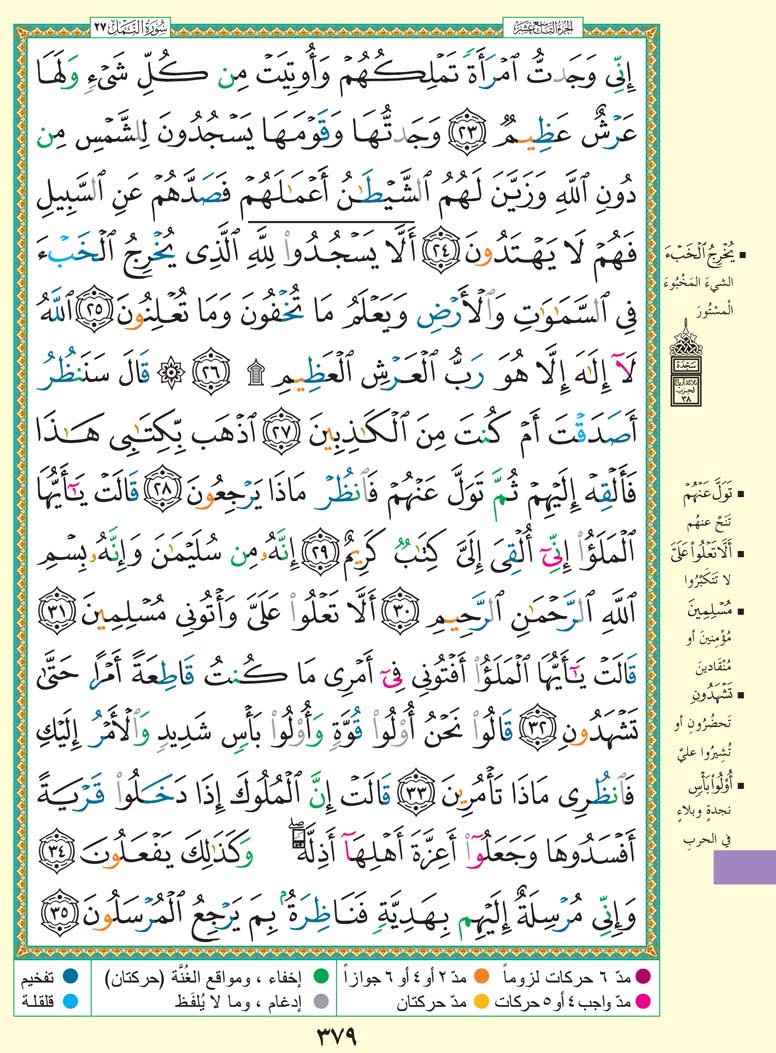 سُورَةُ النَّمْلِ ٢٧
الجُزْءُ التَّاسِعُ عَشَرَ
إِنِّى وَجَدتُّ ٱمْرَأَةً تَمْلِكُهُمْ وَأُوتِيَتْ مِن كُلِّ شَىْءٍ وَلَهَا
عَرْشٌ عَظِيمٌ ٢٣ وَجَدتُّهَا وَقَوْمَهَا يَسْجُدُونَ لِلشَّمْسِ مِن
دُونِ ٱللَّهِ وَزَيَّنَ لَهُمُ ٱلشَّيْطَٰنُ أَعْمَٰلَهُمْ فَصَدَّهُمْ عَنِ ٱلسَّبِيلِ
فَهُمْ لَا يَهْتَدُونَ ٢٤ أَلَّا يَسْجُدُوا۟ لِلَّهِ ٱلَّذِى يُخْرِجُ ٱلْخَبْءَ
فِى ٱلسَّمَٰوَٰتِ وَٱلْأَرْضِ وَيَعْلَمُ مَا تُخْفُونَ وَمَا تُعْلِنُونَ ٢٥ ٱللَّهُ
لَآ إِلَٰهَ إِلَّا هُوَ رَبُّ ٱلْعَرْشِ ٱلْعَظِيمِ ۩ ٢٦ ۞ قَالَ سَنَنظُرُ
أَصَدَقْتَ أَمْ كُنتَ مِنَ ٱلْكَٰذِبِينَ ٢٧ ٱذْهَب بِّكِتَٰبِى هَٰذَا
فَأَلْقِهْ إِلَيْهِمْ ثُمَّ تَوَلَّ عَنْهُمْ فَٱنظُرْ مَاذَا يَرْجِعُونَ ٢٨ قَالَتْ يَٰٓأَيُّهَا
ٱلْمَلَؤُا۟ إِنِّىٓ أُلْقِىَ إِلَىَّ كِتَٰبٌ كَرِيمٌ ٢٩ إِنَّهُۥ مِن سُلَيْمَٰنَ وَإِنَّهُۥ بِسْمِ
ٱللَّهِ ٱلرَّحْمَٰنِ ٱلرَّحِيمِ ٣٠ أَلَّا تَعْلُوا۟ عَلَىَّ وَأْتُونِى مُسْلِمِينَ ٣١
قَالَتْ يَٰٓأَيُّهَا ٱلْمَلَؤُا۟ أَفْتُونِى فِىٓ أَمْرِى مَا كُنتُ قَاطِعَةً أَمْرًا حَتَّىٰ
تَشْهَدُونِ ٣٢ قَالُوا۟ نَحْنُ أُو۟لُوا۟ قُوَّةٍ وَأُو۟لُوا۟ بَأْسٍ شَدِيدٍ وَٱلْأَمْرُ إِلَيْكِ
فَٱنظُرِى مَاذَا تَأْمُرِينَ ٣٣ قَالَتْ إِنَّ ٱلْمُلُوكَ إِذَا دَخَلُوا۟ قَرْيَةً
أَفْسَدُوهَا وَجَعَلُوٓا۟ أَعِزَّةَ أَهْلِهَآ أَذِلَّةً ۖ وَكَذَٰلِكَ يَفْعَلُونَ ٣٤
وَإِنِّى مُرْسِلَةٌ إِلَيْهِم بِهَدِيَّةٍ فَنَاظِرَةٌۢ بِمَ يَرْجِعُ ٱلْمُرْسَلُونَ ٣٥
يُخْرِجُ ٱلْخَبْءَ
الشيءَ المَخْبُوءَ
الْمستُورَ
سَجْدَة
٣٨
تَوَلَّ عَنْهُمْ
تَنَحَّ عنهُم
أَلَّا تَعْلُوا۟ عَلَىَّ
لا تَتَكَبَّرُوا
مُسْلِمِينَ
مُؤْمِنينَ أو
مُنْقَادينَ
تَشْهَدُونِ
تَحضُرُونِ أو
تُشِيرُوا عليَّ
أُو۟لُوا۟ بَأْسٍ
نجدةٍ وبلاءٍ
في الحربِ
مدّ ٦ حركات لزوماً
مدّ ٢ أو ٤ أو ٦ جوازاً
إخفاء ، ومواقع الغُنَّة (حركتان)
تفخيم
مدّ واجب ٤ أو ٥ حركات
مدّ حركتان
إدغام ، وما لا يُلفَظ
قلقلة
٣٧٩